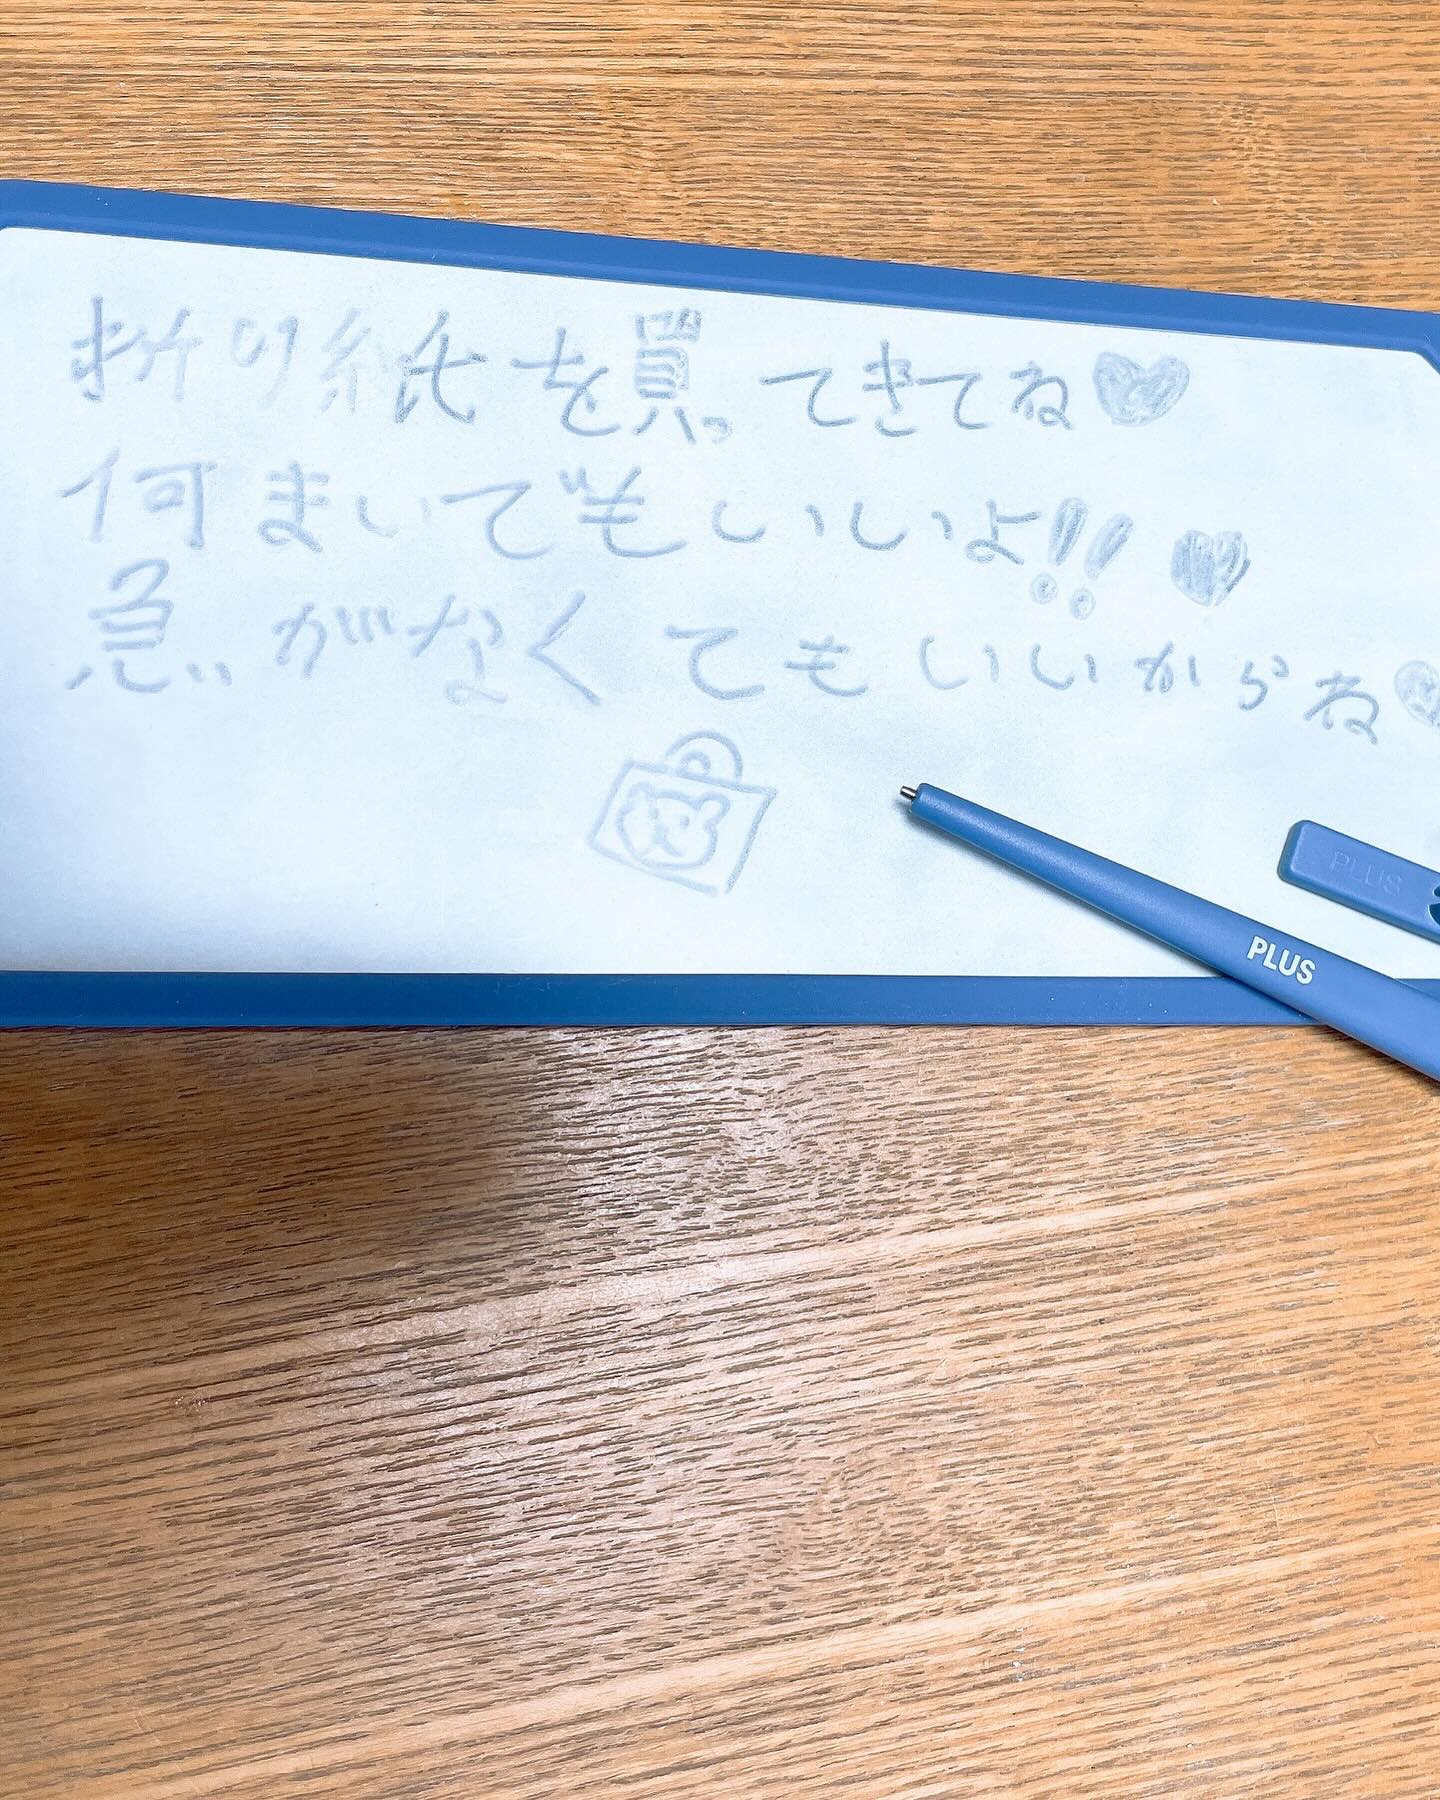 折り紙を買ってきてね♥
何まいでもいいよ!!♥
急いがなくてもいいからね♥
PLUS
PLUS